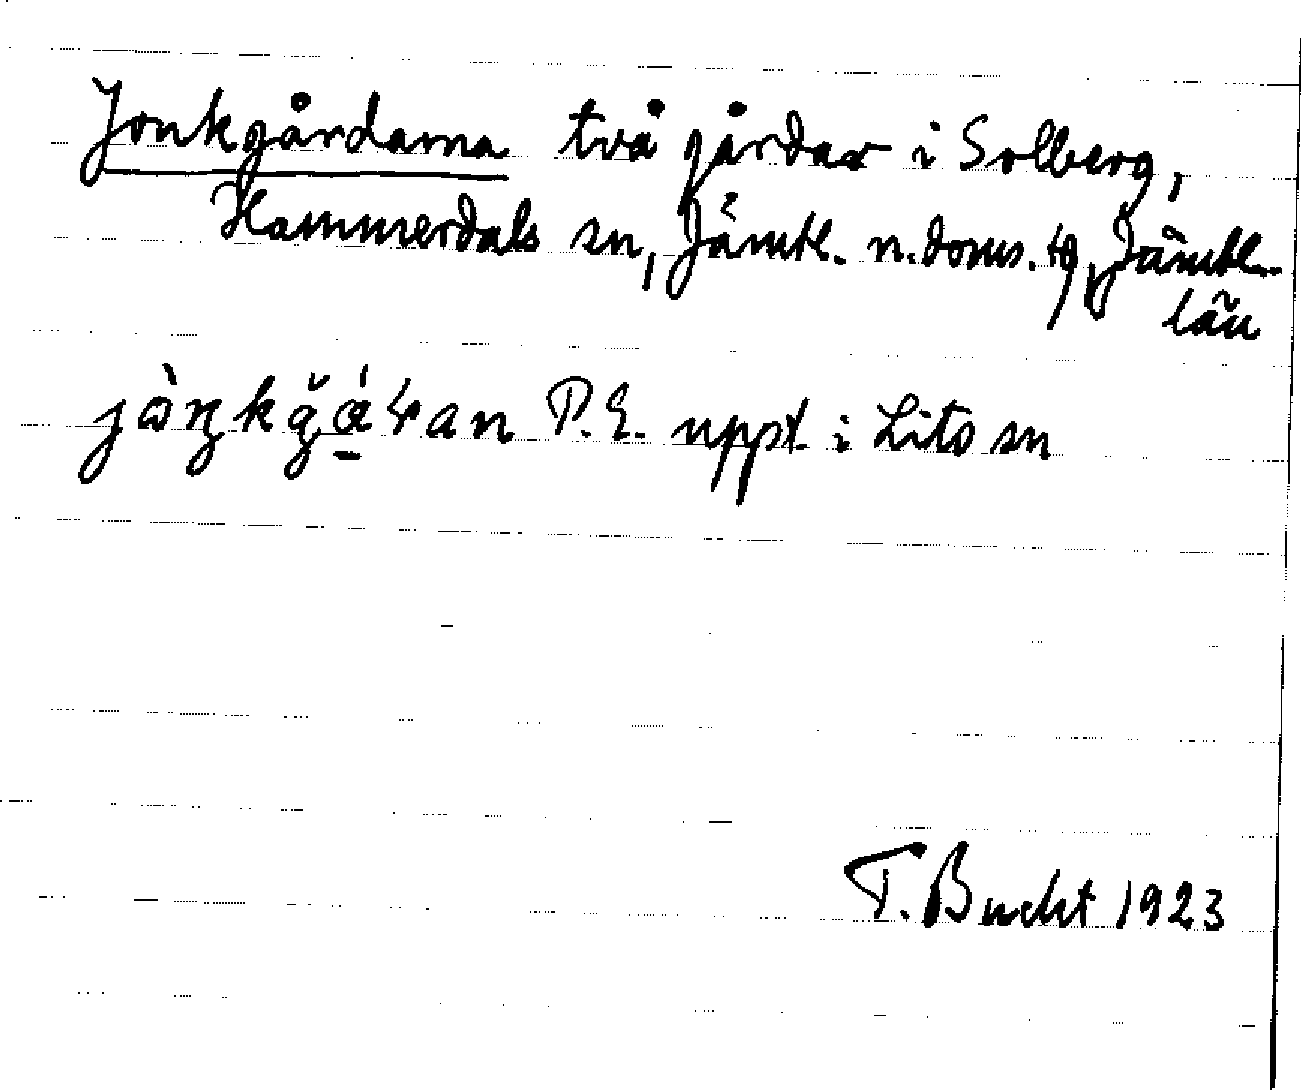 Jonkgårdarna två gårdar i Solberg,
Hammerdals sn, Jämtl. n. doms. tg, Jämtl.
län
P. E. uppt. i Lits sn
T. Bucht 1923